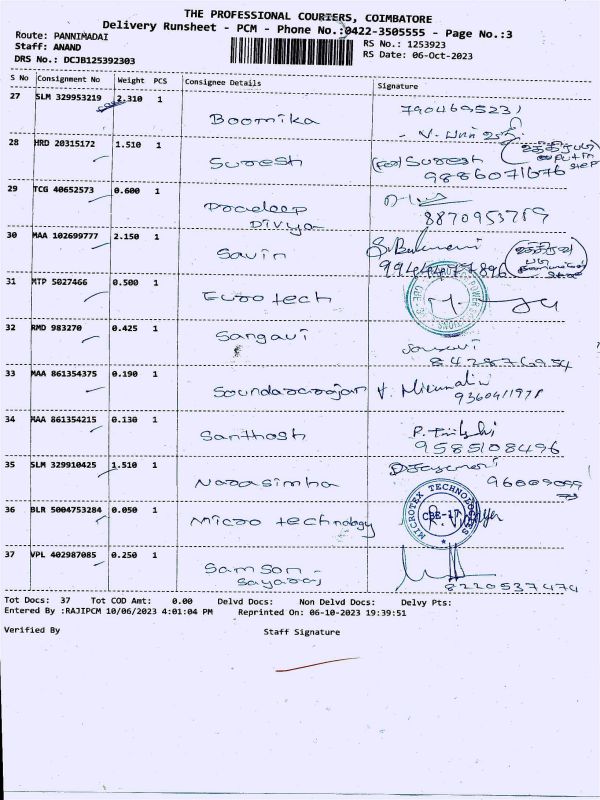 THE PROFESSIONAL COURIERS, COIMBATORE
Delivery Runsheet - PCM - Phone No.:0422-3505555 - Page No.:3
Route: PANNIMADAI
Staff: ANAND
DRS No.: DCJB125392303
RS No.: 1253923
RS Date: 06-Oct-2023
S No Consignment No Weight PCS Consignee Details Signature
27 SLM 329953219 2.310 1 Boomika 7904695231
28 HRD 20315172 1.510 1 Suresh (for) Suresh
9886071676
29 TCG 40652573 0.600 1 Pradeep
Divya
8870953719
30 MAA 102699777 2.150 1 Savin
9944477896
31 MTP 5027466 0.500 1 Euro tech
32 RMD 983270 0.425 1 Sangavi
8428776954
33 MAA 861354375 0.190 1 Soundararajan V.
9360411978
34 MAA 861354215 0.130 1 Santhosh
9585108496
35 SLM 329910425 1.510 1 Narasimha
36 BLR 5004753284 0.050 1 Micro technology
MICROTEX TECHNOLOGIES
CBE-17
37 VPL 402987085 0.250 1 Samson -
Sayaraj
8220537474
Tot Docs: 37 Tot COD Amt: 0.00 Delvd Docs: Non Delvd Docs: Delvy Pts:
Entered By :RAJIPCM 10/06/2023 4:01:04 PM Reprinted On: 06-10-2023 19:39:51
Verified By Staff Signature